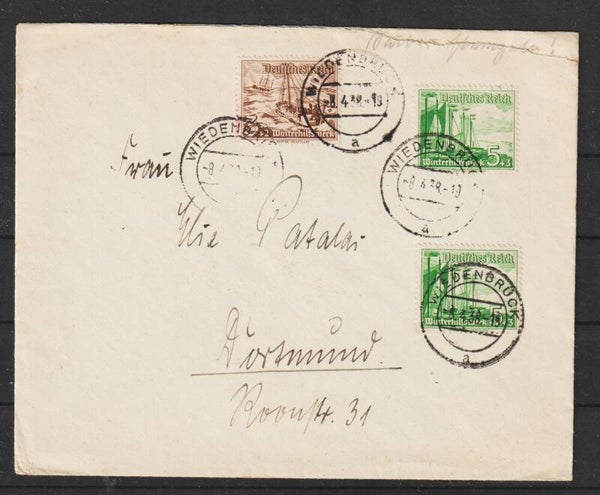 Deutsches Reich
Winterhilfswerk
WIEDENBRÜCK
-8.4.38.-19
a
WIEDENBRÜCK
-8.4.38.-19
Deutsches Reich
5+3
Winterhilfswerk
WIEDENBRÜCK
-8.4.38.-19
a
Deutsches Reich
5+3
Winterhilfswerk
WIEDENBRÜCK
-8.4.38.-19
a
Frau
Patalai
Dortmund
Roonstr. 31